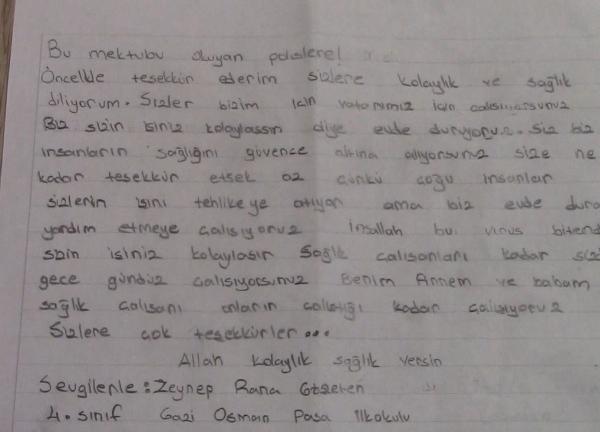 Bu mektubu okuyan polislere!
Öncelikle teşekkür ederim sizlere kolaylık ve sağlık
diliyorum. Sizler bizim için vatanımız için çalışıyorsunuz
Biz sizin işiniz kolaylaşsın diye evde duruyoruz. Siz biz
insanların sağlığını güvence altına alıyorsunuz size ne
kadar teşekkür etsek az çünkü çoğu insanlar
sizlerin işini tehlikeye atıyor ama biz evde dura
yardım etmeye çalışıyoruz İnşallah bu virüs bitend
sizin işiniz kolaylaşır Sağlık çalışanları kadar siz
gece gündüz çalışıyorsunuz Benim Annem ve babam
sağlık çalışanı onların çalıştığı kadar çalışıyoruz
Sizlere çok teşekkürler...
Allah kolaylık sağlık versin
Sevgilerle: Zeynep Rana
4. sınıf Gazi Osman Paşa İlkokulu